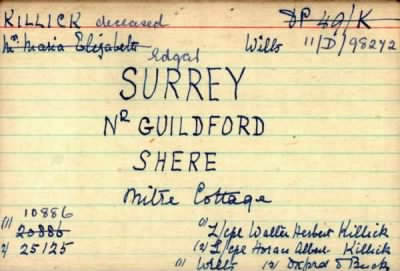 KILLICK deceased DP 49/K
Mrs Maria Elizabeth Wills 11/D/98242
Edgar
SURREY
NR GUILDFORD
SHERE
Mitre Cottage
10886
(1) 20886 (1) L/cpl Walter Herbert Killick
2) 25125 (2) L/cpl Horace Albert Killick
1) Wilts (2) Oxford & Bucks